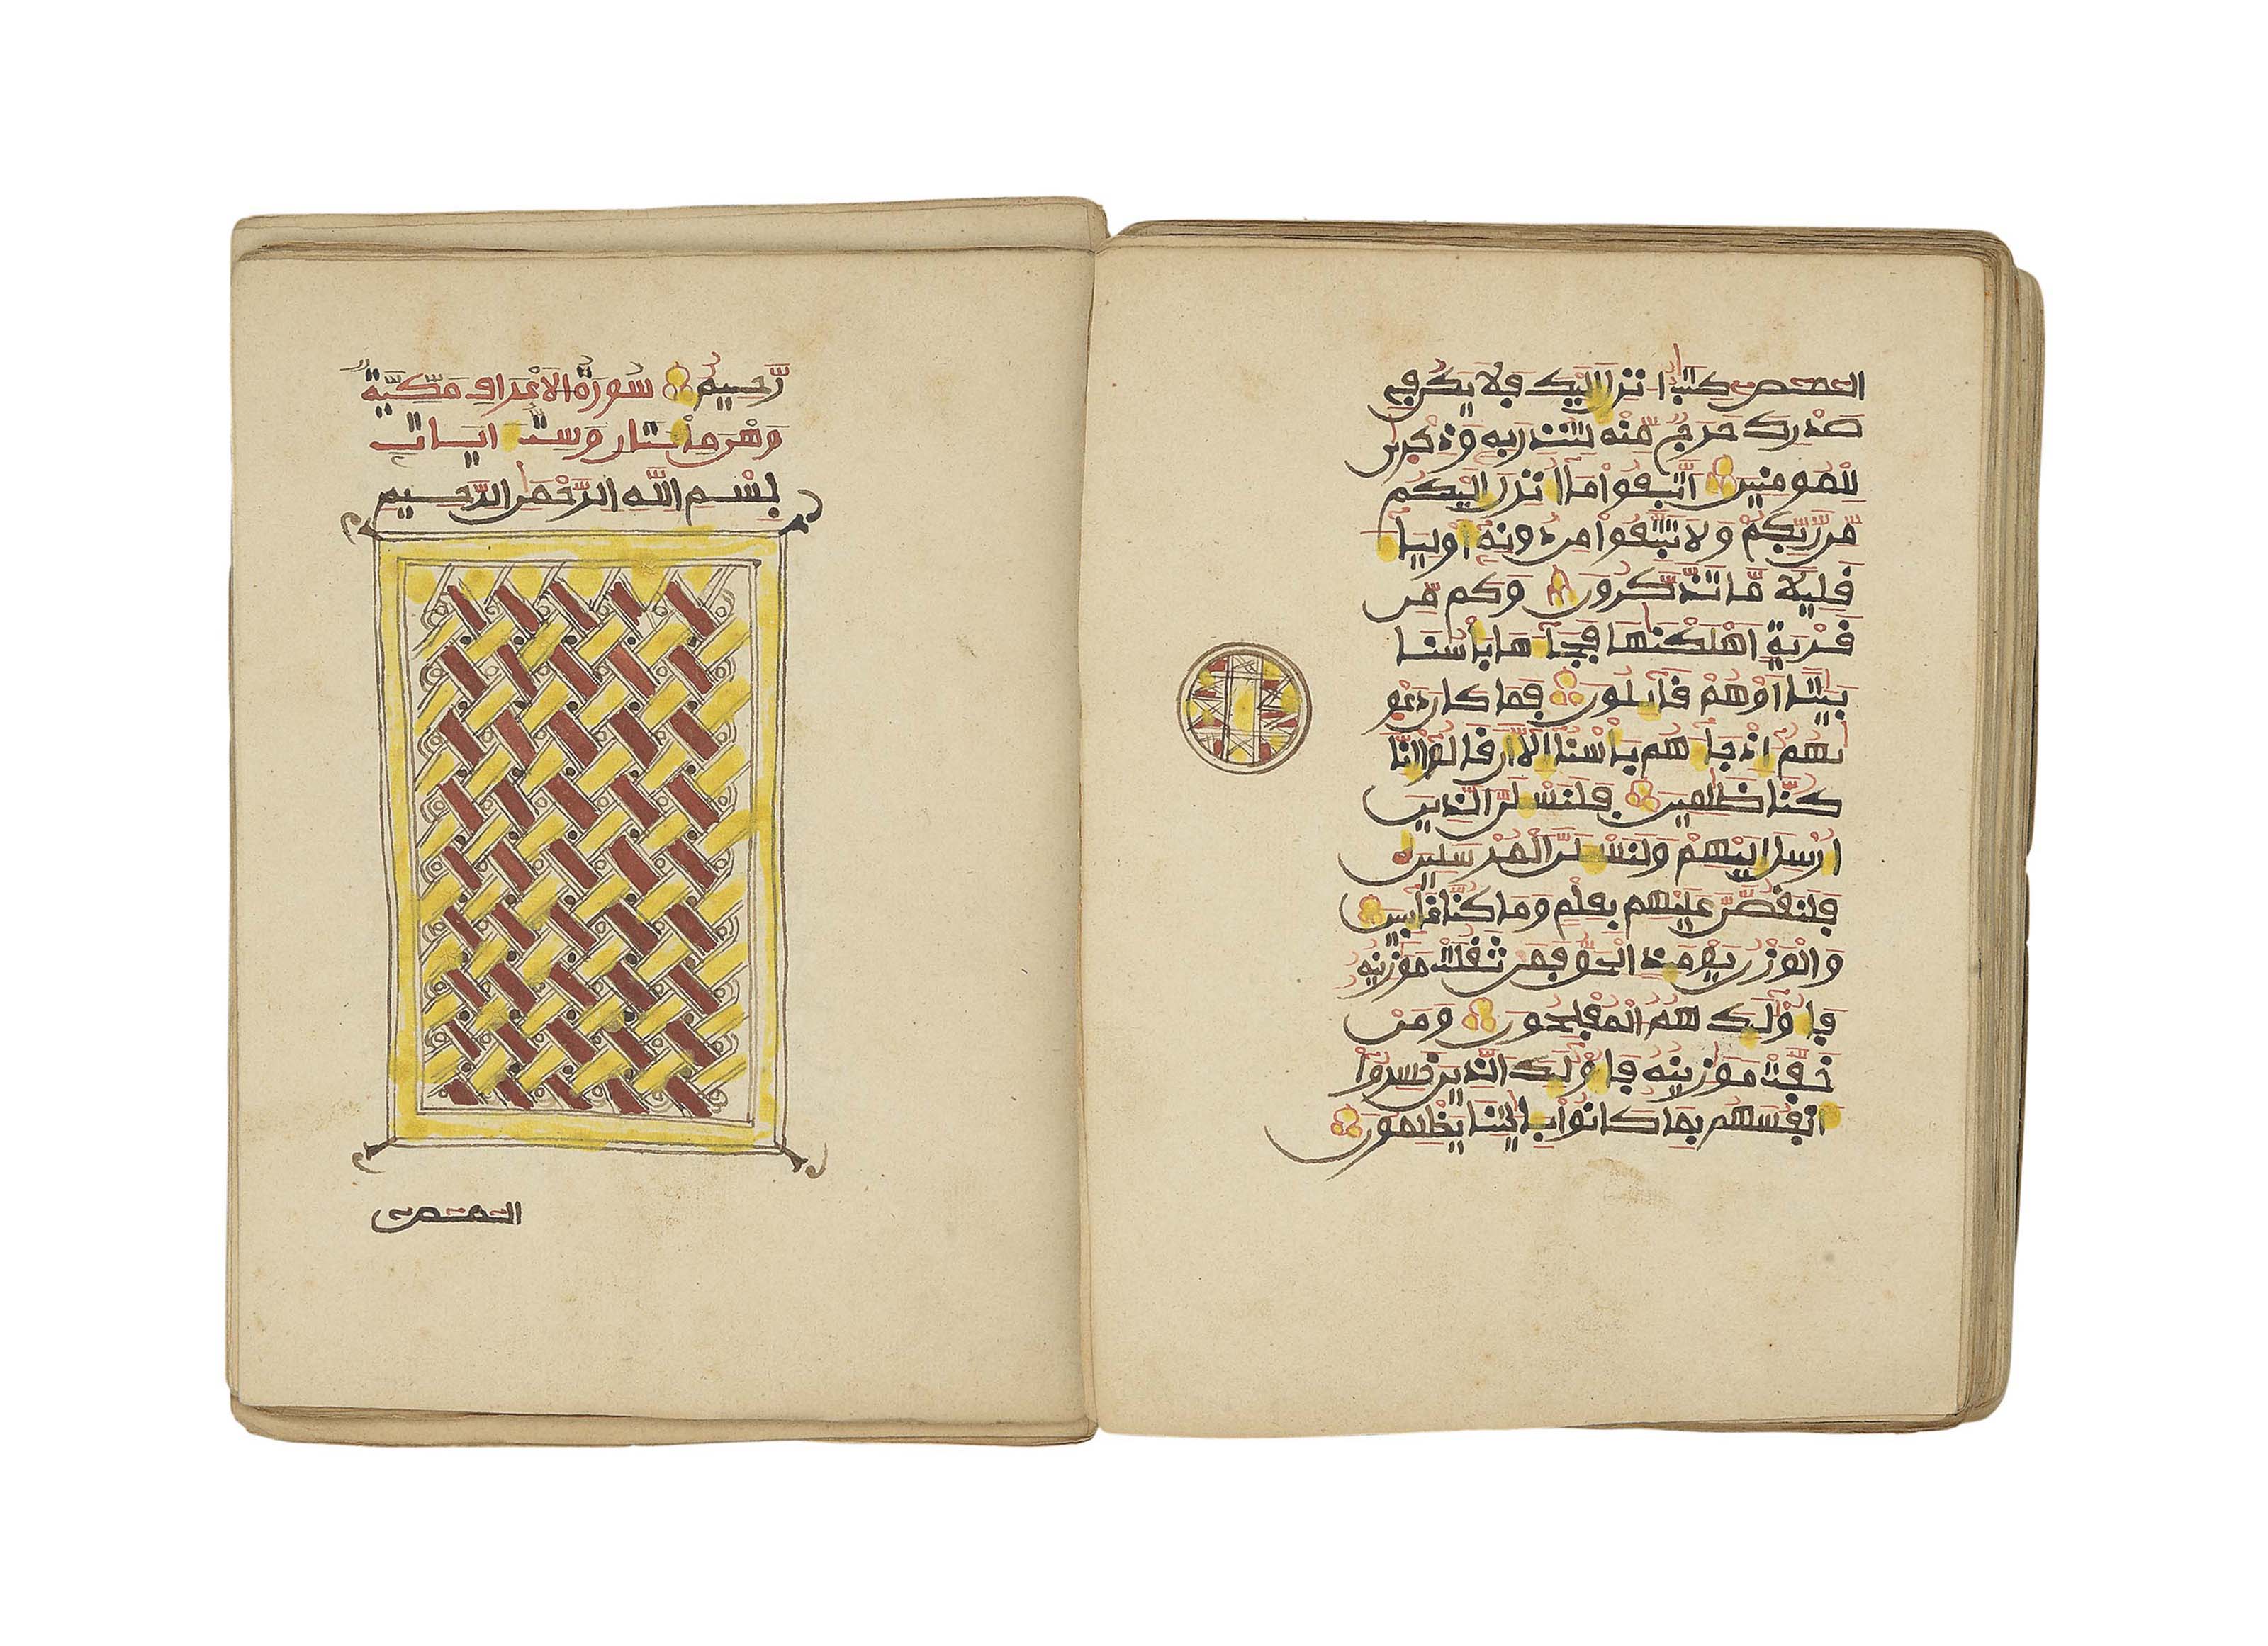 رَّحِيمٌ سورة الاعراف مكية
وهي مائتان وست ايات
بسم الله الرحمن الرحيم
المص
المص كتب انزل اليك فلا يكن في
صدرك حرج منه لتنذر به وذكرى
للمومنين اتبعوا ما انزل اليكم
من ربكم ولا تتبعوا من دونه اوليا
قليلا ما تذكرون وكم من
قرية اهلكنها فجاها باسنا
بيتا او هم قايلون فما كان دعو
يهم اذ جاهم باسنا الا ان قالوا انا
كنا ظلمين فلنسلن الذين
ارسل اليهم ولنسلن المرسلين
فلنقصن عليهم بعلم وما كنا غايبين
والوزن يوميذ الحق فمن ثقلت موزينه
فاوليك هم المفلحون ومن
خفت موزينه فاوليك الذين خسروا
انفسهم بما كانوا بايتنا يظلمون